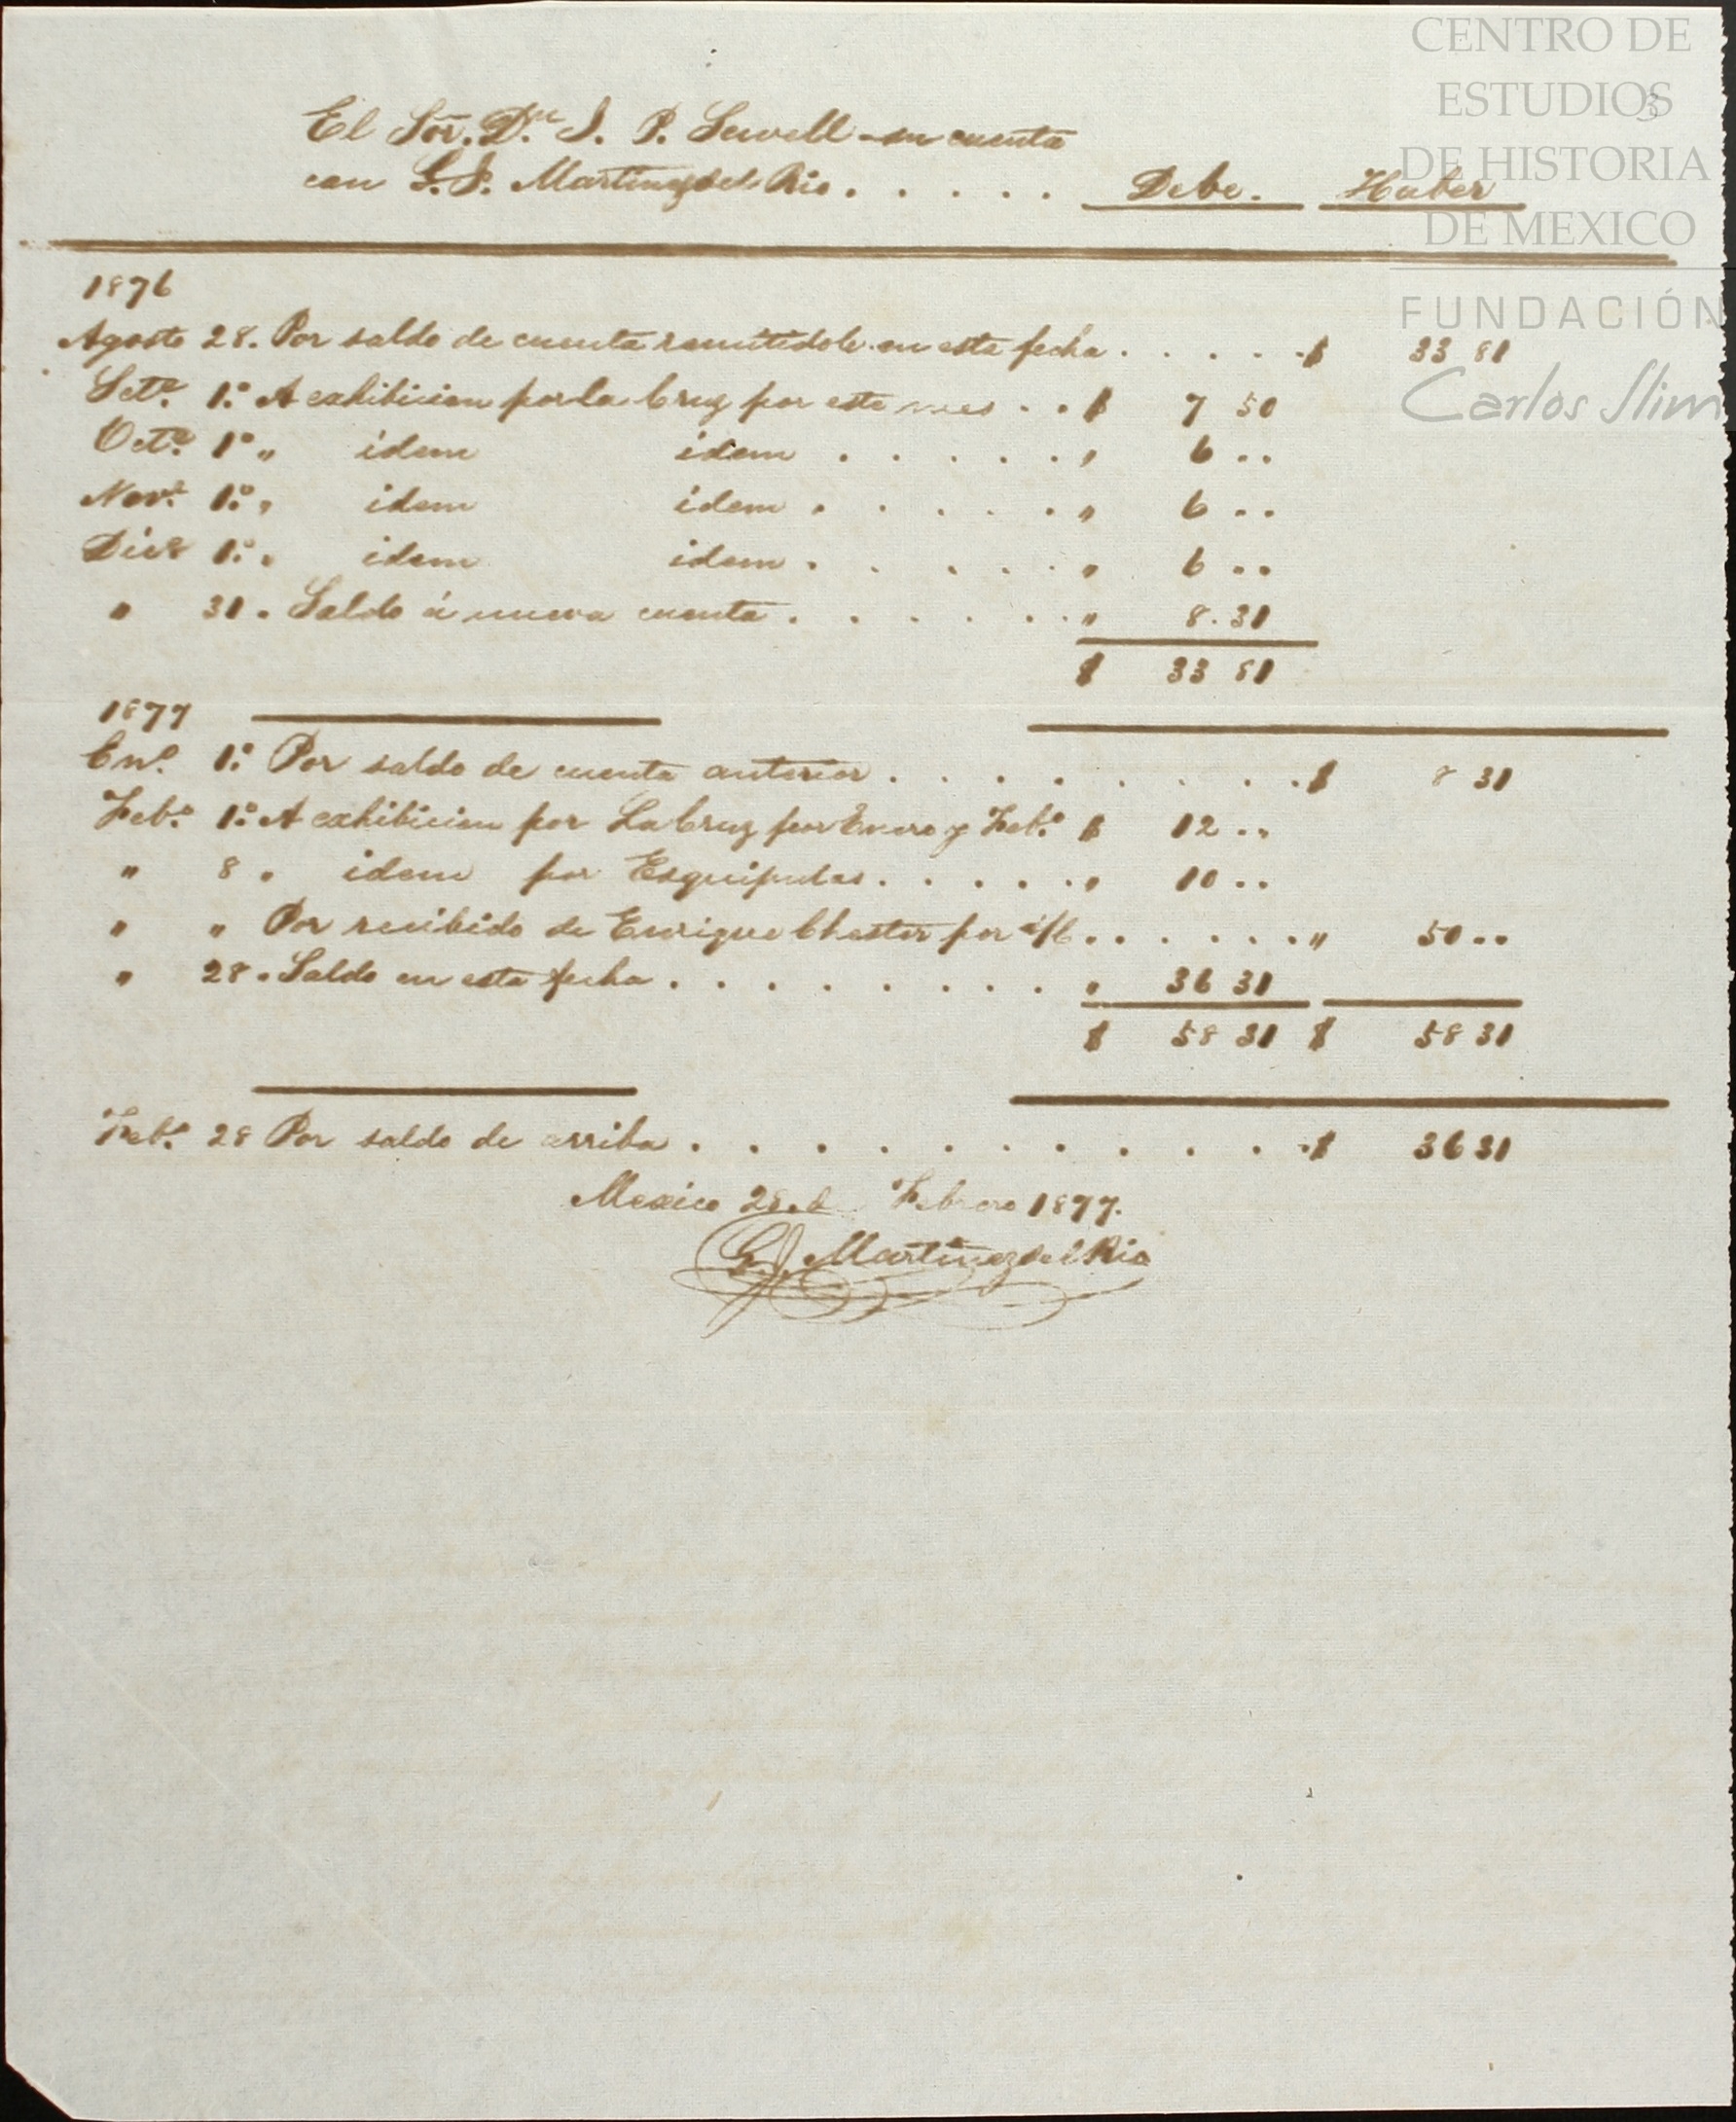 CENTRO DE
ESTUDIOS
DE HISTORIA
DE MEXICO
FUNDACIÓN
Carlos Slim
3
El Sor. Dn. J. P. Sewell su cuenta
con G. J. Martinez del Rio . . . . . Debe. Haber
1876
Agosto 28. Por saldo de cuenta remitidole en esta fecha . . . . . $ 33 81
Sete. 1.º A exhibicion por la Cruz por este mes . . $ 7 50
Octe. 1º " idem idem . . . . . " 6 ..
Nove. 1.º " idem idem . . . . . " 6 ..
Dice. 1.º " idem idem . . . . . " 6 ..
" 31. Saldo á nueva cuenta . . . . . . " 8.31
$ 33 81
1877
Eno. 1.º Por saldo de cuenta anterior . . . . . . . . $ 8 31
Febo. 1.º A exhibicion por La Cruz por Enero y Febo. $ 12 ..
" 8 " idem por Esquipulas . . . . . " 10 ..
" " Por recibido de Enrique Chester por . . . . . . " 50 ..
" 28. Saldo en esta fecha . . . . . . . . " 36 31
$ 58 31 $ 58 31
Febo. 28 Por saldo de arriba . . . . . . . . . . $ 36 31
Mexico 28 de Febrero 1877.
G. J. Martinez del Rio